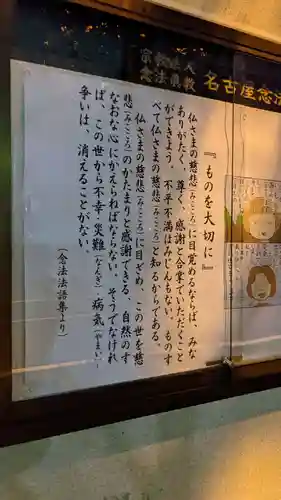 宗教法人
念法眞教
名古屋念法
『ものを大切に』
仏さまの慈悲(みこころ)に目覚めるならば、みな
ありがたい、尊く、感謝と合掌でいただくこと
ができよう。不平不満はみじんもない。ものす
べて仏さまの慈悲(みこころ)と知るからである。
仏さまの慈悲(みこころ)に目ざめ、この世を慈
悲(みこころ)のかたまりと感謝できる、自然のす
なおな心にかえらねばならない。そうでなけれ
ば、この世から不幸・災難(なんぎ)病気(やまい)、
争いは、消えることがない。
(念法法語集より)